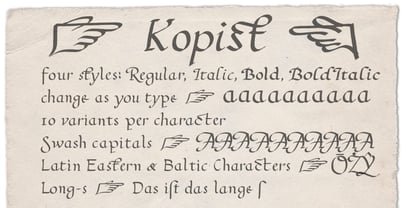 ☞ Kopist ☜
four styles: Regular, Italic, Bold, BoldItalic
change as you type ☞ aaaaaaaaaa
10 variants per character
Swash capitals ☞ AAAAAAAAAA
Latin Eastern & Baltic Characters ☞
Long-s ☞ Das iſt das lange ſ